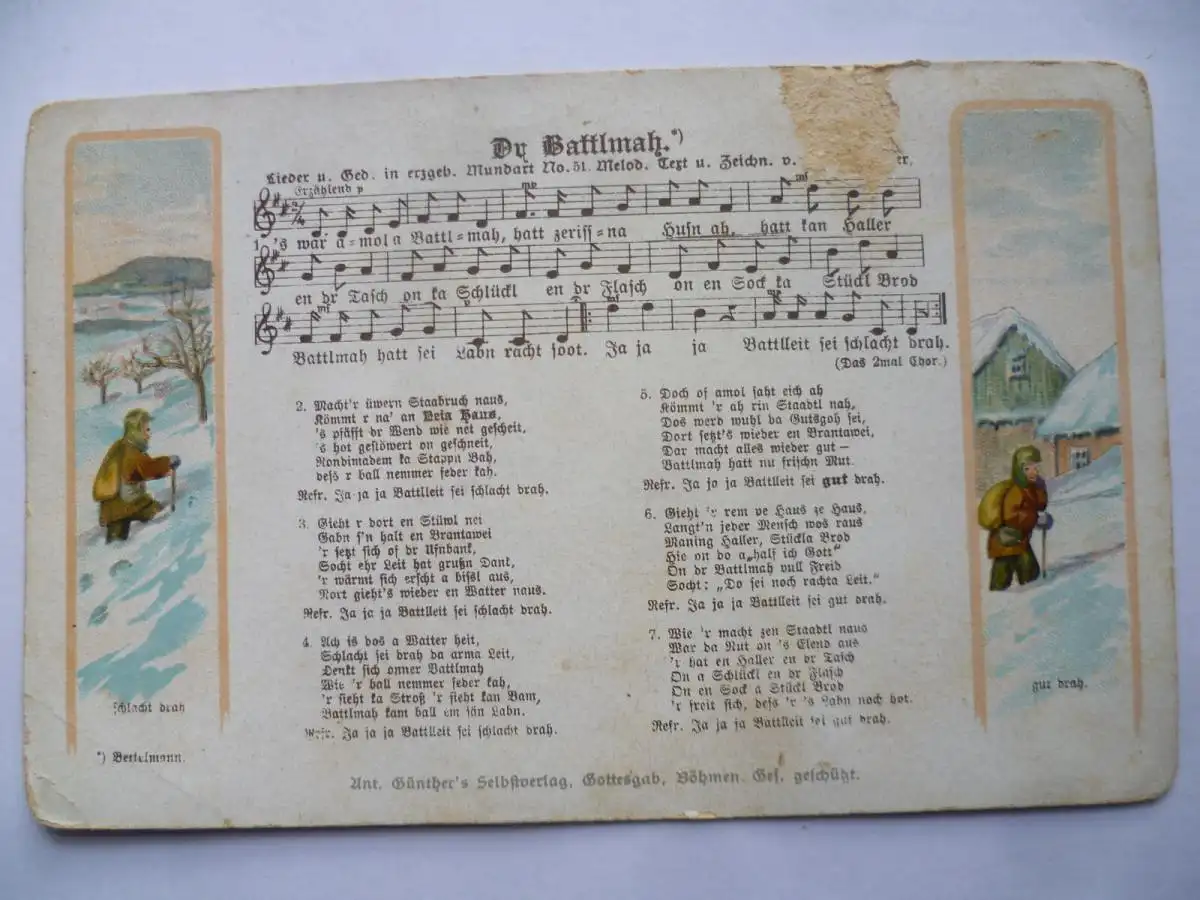 Dr Battlmah.*)
Lieder u. Ged. in erzgeb. Mundart No. 51. Melod. Text u. Zeichn. v.
Erzählend p
mp
mf
1. 's war a=mol a Battl=mah, hatt zeriss=na Husn ah, hatt kan Haller
en dr Tasch on ka Schlückl en dr Flasch on en Sock ka Stückl Brod
mf p mf mf
Battlmah hatt sei Labn racht soot. Ja ja ja Battlleit sei schlacht drah.
(Das 2mal Chor.)
2. Macht'r üwern Staabruch naus,
Kömmt r na' an Neia Haus,
's pfäfft dr Wend wie net gescheit,
's hot gestöwert on geschneit,
Rondimadem ka Stappn Bah,
dess r ball nemmer feder kah.
Refr. Ja ja ja Battlleit sei schlacht drah.
3. Gieht r dort en Stüwl nei
Gabn s'n halt en Brantawei
'r setzt sich of dr Ufnbank,
Socht ehr Leit hat grußn Dank,
'r wärmt sich erscht a bissl aus,
Nort gieht's wieder en Watter naus.
Refr. Ja ja ja Battlleit sei schlacht drah.
4. Ach is dos a Watter heit,
Schlacht sei drah da arma Leit,
Denkt sich onner Battlmah
Wie 'r ball nemmer feder kah,
'r sieht ka Stroß 'r sieht kan Bam,
Battlmah kam ball em sän Labn.
Refr. Ja ja ja Battlleit sei schlacht drah.
5. Doch of amol saht eich ah
Kömmt 'r ah rin Staadtl nah,
Dos werd wuhl da Gutsgoh sei,
Dort setzt's wieder en Brantawei,
Dar macht alles wieder gut —
Battlmah hatt nu frischn Mut.
Refr. Ja ja ja Battlleit sei gut drah.
6. Gieht 'r rem ve Haus ze Haus,
Langt'n jeder Mensch wos raus
Maning Haller, Stückla Brod
Hie on do a „half ich Gott“
On dr Battlmah vull Freid
Socht: „Do sei noch rachta Leit.“
Refr. Ja ja ja Battlleit sei gut drah.
7. Wie 'r macht zen Staadtl naus
War da Nut on 's Elend aus
'r hat en Haller en dr Tasch
On a Schlückl en dr Flasch
On en Sock a Stückl Brod
'r freit sich, dess 'r 's Labn noch hot.
Refr. Ja ja ja Battlleit sei gut drah.
schlacht drah
gut drah.
*) Bettelmann.
Ant. Günther's Selbstverlag, Gottesgab, Böhmen. Ges. geschützt.